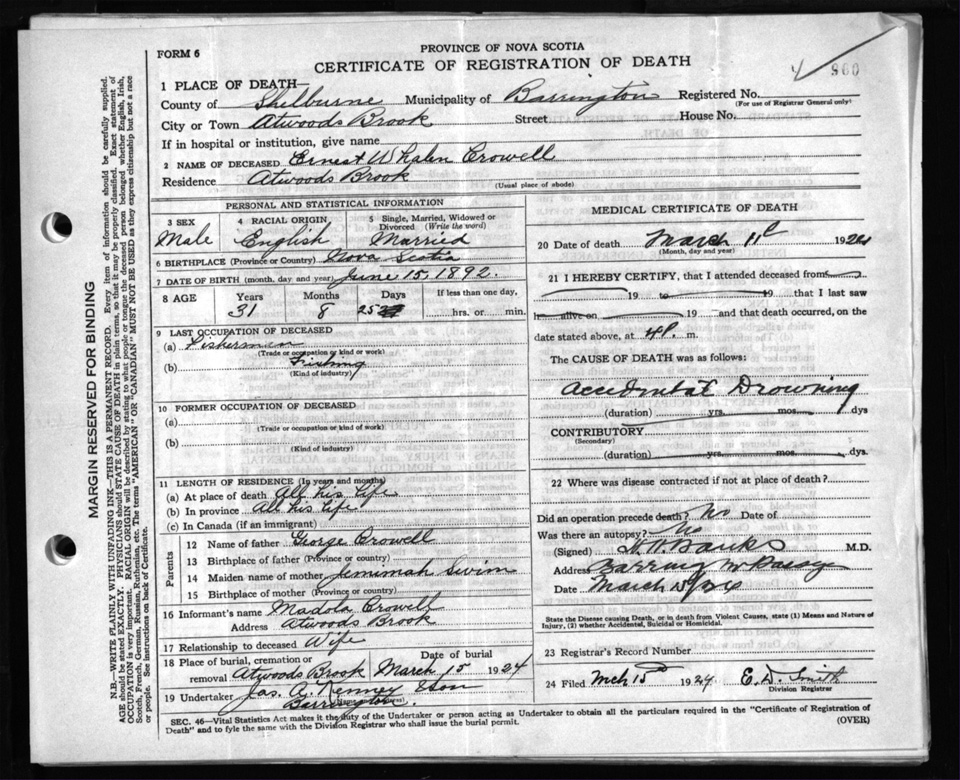 FORM 6
PROVINCE OF NOVA SCOTIA
CERTIFICATE OF REGISTRATION OF DEATH
960
1 PLACE OF DEATH—
County of Shelburne Municipality of Barrington Registered No.
(For use of Registrar General only)
City or Town Atwoods Brook Street House No.
If in hospital or institution, give name
2 NAME OF DECEASED Ernest Whalen Crowell
Residence Atwoods Brook
(Usual place of abode)
PERSONAL AND STATISTICAL INFORMATION
3 SEX 4 RACIAL ORIGIN 5 Single, Married, Widowed or Divorced (Write the word)
Male English Married
6 BIRTHPLACE (Province or Country) Nova Scotia
7 DATE OF BIRTH (month, day and year) June 15, 1892.
8 AGE Years Months Days If less than one day,
31 8 25 hrs. or min.
9 LAST OCCUPATION OF DECEASED
(a) Fisherman
(Trade or occupation or kind or work)
(b) Fishing
(Kind of industry)
10 FORMER OCCUPATION OF DECEASED
(a)
(Trade or occupation or kind or work)
(b)
(Kind of industry)
11 LENGTH OF RESIDENCE (In years and months)
(a) At place of death All his Life
(b) In province All his Life
(c) In Canada (if an immigrant)
Parents
12 Name of father George Crowell
13 Birthplace of father (Province or country)
14 Maiden name of mother Jemimah Swim
15 Birthplace of mother (Province or country)
16 Informant's name Madola Crowell
Address Atwoods Brook
17 Relationship to deceased Wife
18 Place of burial, cremation or removal Atwoods Brook Date of burial March 15 1924
19 Undertaker Jas. A. Kenney & Son
Barrington.
MEDICAL CERTIFICATE OF DEATH
20 Date of death March 11 1924
(Month, day and year)
21 I HEREBY CERTIFY, that I attended deceased from
19 to 19 that I last saw
h alive on 19 and that death occurred, on
date stated above, at 4 P. m.
The CAUSE OF DEATH was as follows:
Accidental Drowning
(duration) yrs. mos. dys
CONTRIBUTORY
(Secondary)
(duration) yrs. mos. dys.
22 Where was disease contracted if not at place of death?
Did an operation precede death? No Date of
Was there an autopsy? No
(Signed) Banks M.D.
Address Barrington Passage
Date March 15
State the Disease causing Death, or in death from Violent Causes, state (1) Means and Nature of Injury, (2) whether Accidental, Suicidal or Homicidal.
23 Registrar's Record Number
24 Filed Mch 15 1924. E. D. Smith
Division Registrar
SEC. 46—Vital Statistics Act makes it the duty of the Undertaker or person acting as Undertaker to obtain all the particulars required in the "Certificate of Registration of
Death" and to fyle the same with the Division Registrar who shall issue the burial permit.
(OVER)
MARGIN RESERVED FOR BINDING
N.B.—WRITE PLAINLY WITH UNFADING INK—THIS IS A PERMANENT RECORD. Every item of information should be carefully supplied.
AGE should be stated EXACTLY. PHYSICIANS should STATE CAUSE OF DEATH in plain terms, so that it may be properly classified. Exact statement of
OCCUPATION is very important. RACIAL ORIGIN will be described by stating to what people or tongue the deceased person belonged whether English, Irish,
Scotch, French, German, Russian, Ruthenian, etc. The terms "AMERICAN" OR "CANADIAN" MUST NOT BE USED as they express citizenship but not a race
or people. See instructions on back of Certificate.